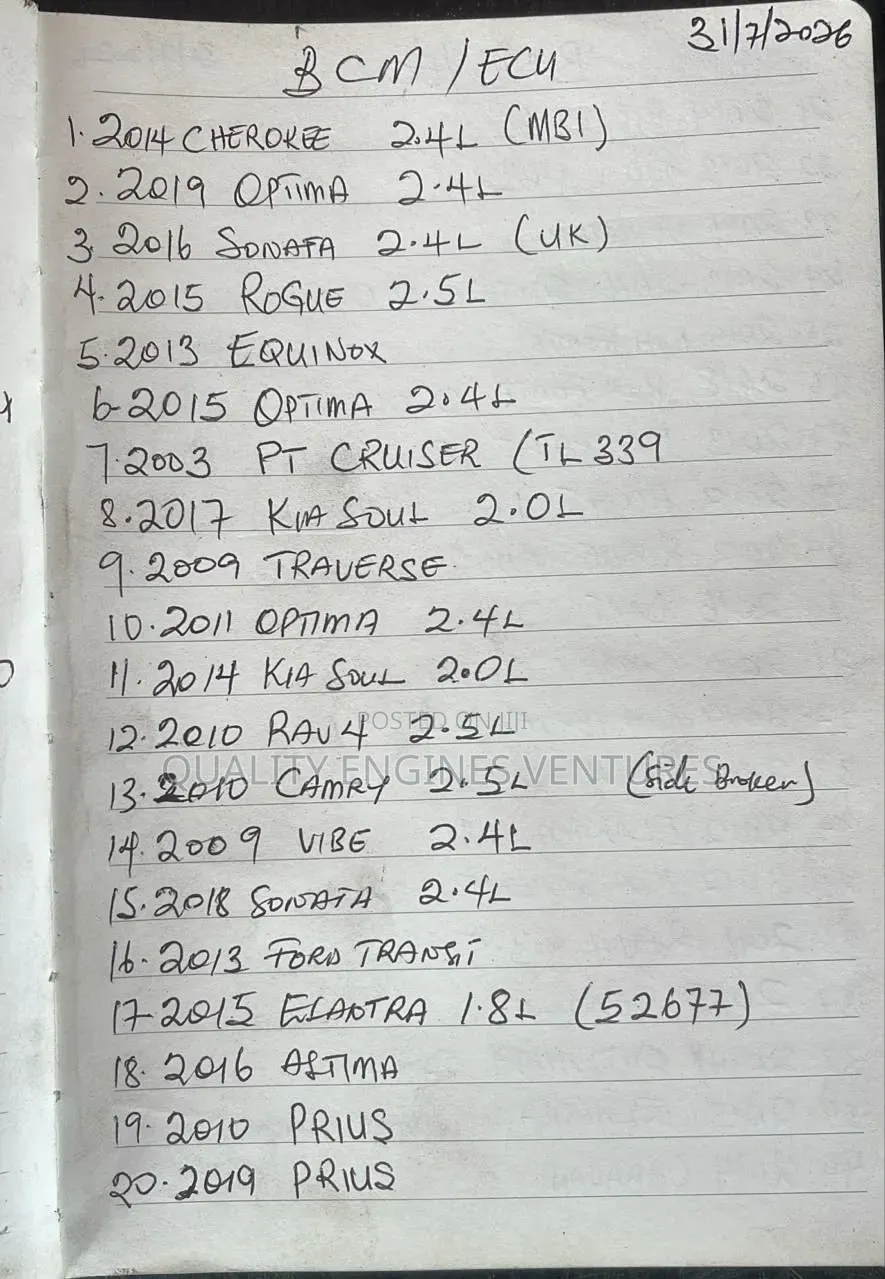 31/7/2026
BCM/ECU
1. 2014 CHEROKEE 2.4L (MB1)
2. 2019 OPTIMA 2.4L
3. 2016 SONATA 2.4L (UK)
4. 2015 ROGUE 2.5L
5. 2013 EQUINOX
6. 2015 OPTIMA 2.4L
7. 2003 PT CRUISER (TL 339
8. 2017 KIA SOUL 2.0L
9. 2009 TRAVERSE
10. 2011 OPTIMA 2.4L
11. 2014 KIA SOUL 2.0L
POSTED ON IIJI
12. 2010 RAV4 2.5L
QUALITY ENGINES VENTURES
13. 2010 CAMRY 2.5L (Side Broken)
14. 2009 VIBE 2.4L
15. 2018 SONATA 2.4L
16. 2013 FORD TRANSIT
17. 2015 ELANTRA 1.8L (52677)
18. 2016 ALTIMA
19. 2010 PRIUS
20. 2019 PRIUS